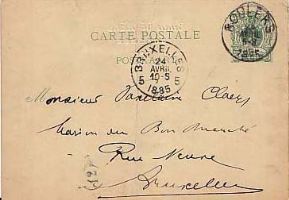 CARTE POSTALE
ROULERS
1885
BRUXELLES
24
AVRIL
10-S
5 5
1885
Monsieur Claeys
Maison du Bon Marché
Rue Neuve
Bruxelles